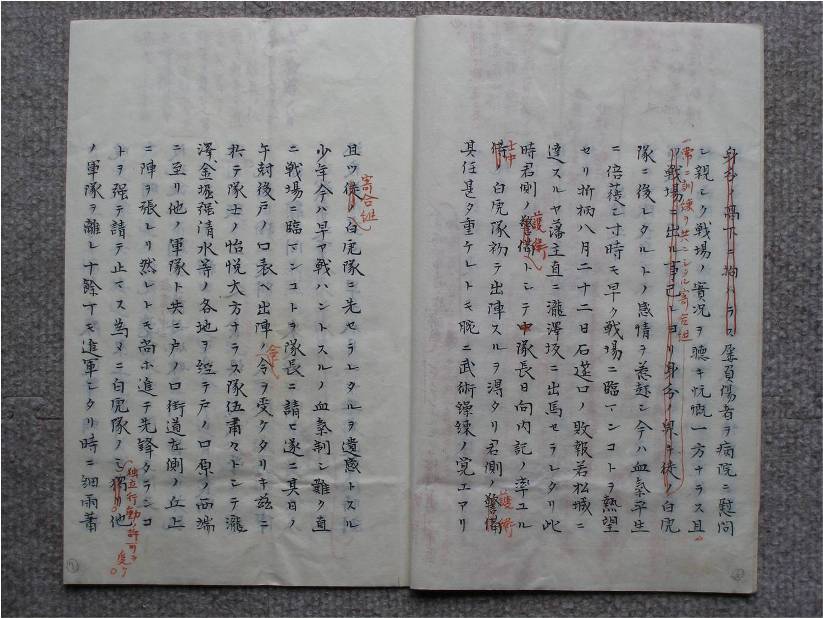 身分ノ高下ニ拘ハラス屡負傷者ヲ病院ニ慰問
シ親シク戦場ノ實況ヲ聴キ忼慨一方ナラス且
ツ戦場ニ出ル事己レヨリ身分ノ卑キ徒ノ白虎
常ニ訓練ヲ共ニシタル寄合組
隊ニ後レタルトノ感情ヲ惹起シ今ハ血氣平生
ニ倍蓰シ寸時モ早ク戦場ニ臨マンコトヲ熱望
セリ折柄八月二十二日石莚口ノ敗報若松城ニ
達スルヤ藩主直ニ瀧澤坂ニ出馬セラレタリ此
時君側ノ警備トシテ中隊長日向内記ノ率ユル
護衛
士中
白虎隊初テ出陣スルヲ得タリ君側ノ警備
護衛
其任是タ重ケレトモ腕ニ武術鍛錬ノ覚エアリ
且ツ徒ノ白虎隊ニ先セラレタルヲ遺感トスル
寄合組
少年今ハ早ヤ戦ハントスルノ血氣制シ難ク直
ニ戦場ニ臨マンコトヲ隊長ニ請ヒ遂ニ其日ノ
午刻後戸ノ口表ヘ出陣ノ令ヲ受ケタリキ茲ニ
命
於テ隊士ノ怡悦大方ナラス隊伍肅々トシテ瀧
澤、金堀、強清水等ノ各地ヲ経テ戸ノ口原ノ西端
ニ至リ他ノ軍隊ト共ニ戸ノ口街道左側ノ丘上
ニ陣ヲ張レリ然レトモ尚ホ進テ先鋒タランコ
トヲ強テ請テ止マス為メニ白虎隊ノミ獨リ他
独立行動ノ許可ヲ
ノ軍隊ト離レ十餘丁モ進軍シタリ時ニ細雨蕭